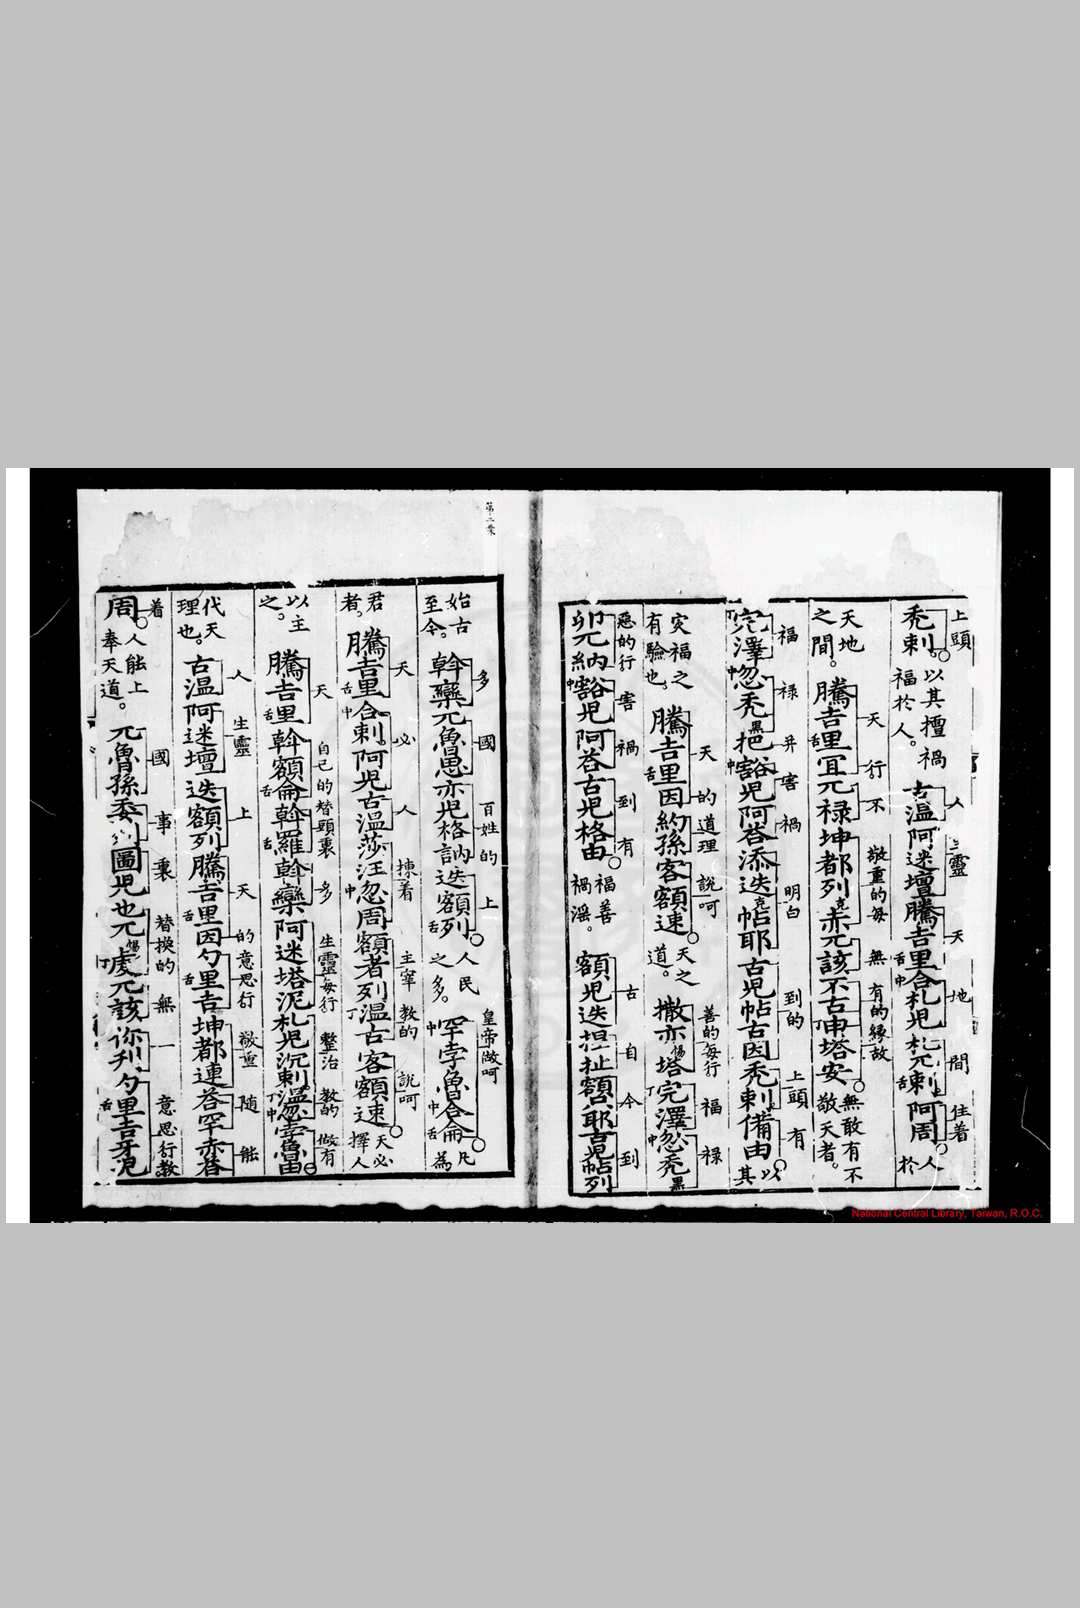 上頭
禿剌。以其擅禍福於人。古溫阿迷壇騰吉里合札兒札兀剌阿周。人於
人 靈 天 地 間 住着
天地之間。騰吉里宜兀祿坤都列赤兀該不古申塔安。無敢有不敬天者。
天 行 不 敬重的每 無 有的緣故
完澤忽禿把豁兒阿荅添迭帖耶古兒帖古因禿剌備由。以其
福 祿 并 害 禍 明白 到的 上頭 有
灾福之有驗也。騰吉里因約孫客額速。天之道。撒亦塔完澤忽禿
天 的 道理 說呵 善的每行 福 祿
卯兀納豁兒阿荅古兒格由。福善禍滛。額兒迭揑扯額耶古兒帖列
惡的行 害 禍 到 有 古 自 今 到
始古至今。斡欒兀魯思亦兒格訥迭額列。人民之多。罕孛魯合侖。凡為
多 國 百姓的 上 皇帝做呵
君者。騰吉里合剌阿兒古溫莎汪忽周額者列溫古客額速。天必擇人
天 必 人 揀着 主宰 教的 說呵
以主之。騰吉里斡額侖斡羅斡欒阿迷塔泥札兒沉剌溫忽孛魯由。
天 自己的替頭裏 多 生靈每行 整治 教的 做有
代天理也。古溫阿迷壇迭額列騰吉里因勺里吉坤都連荅罕赤荅
人 生靈 上 天 的 意思行 敬重 隨 能
周。人能上奉天道。兀魯孫委列圖兒也兀虔兀該你刊勺里吉牙兒
着 國 事 裏 替換的 無 一 意思行教
第二葉
National Central Library, Taiwan, R.O.C.